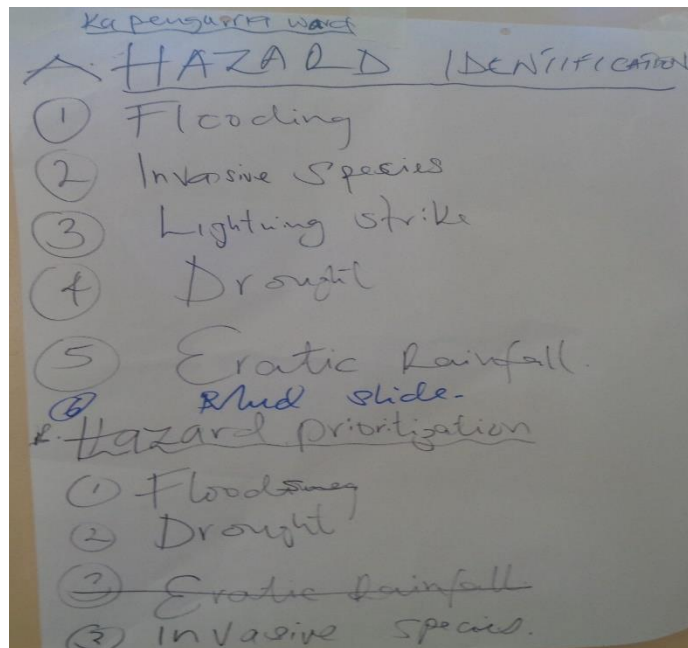 Kapenguria ward
A. HAZARD IDENTIIFICATION
1 Flooding
2 Invasive Species
3 Lightning strike
4 Drought
5 Eratic Rainfall.
6 Mud slide.
B. Hazard prioritization
1 Floods
2 Drought
3 Eratic Rainfall.
3 Invasive species.